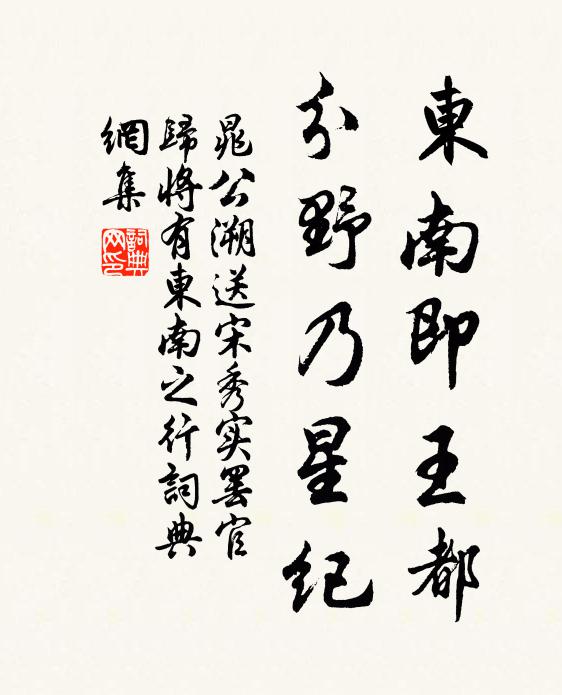 東南即王都
分野乃星纪
晁公溯送宋秀实罢官
歸將有東南之行詞典
網集
詞典網印